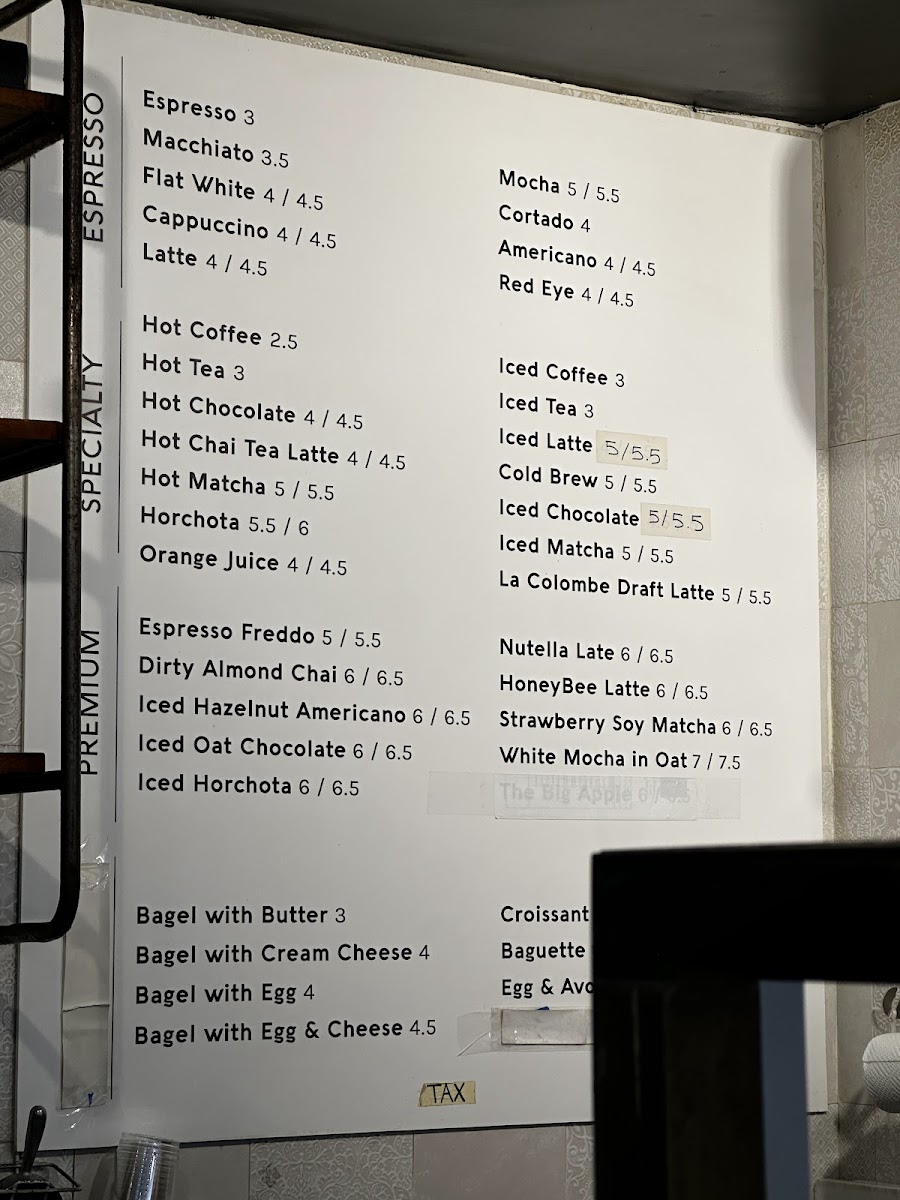 ESPRESSO
Espresso 3
Macchiato 3.5
Flat White 4 / 4.5
Cappuccino 4 / 4.5
Latte 4 / 4.5
Mocha 5 / 5.5
Cortado 4
Americano 4 / 4.5
Red Eye 4 / 4.5
SPECIALTY
Hot Coffee 2.5
Hot Tea 3
Hot Chocolate 4 / 4.5
Hot Chai Tea Latte 4 / 4.5
Hot Matcha 5 / 5.5
Horchota 5.5 / 6
Orange Juice 4 / 4.5
Iced Coffee 3
Iced Tea 3
Iced Latte 5/5.5
Cold Brew 5 / 5.5
Iced Chocolate 5/5.5
Iced Matcha 5 / 5.5
La Colombe Draft Latte 5 / 5.5
PREMIUM
Espresso Freddo 5 / 5.5
Dirty Almond Chai 6 / 6.5
Iced Hazelnut Americano 6 / 6.5
Iced Oat Chocolate 6 / 6.5
Iced Horchota 6 / 6.5
Nutella Late 6 / 6.5
HoneyBee Latte 6 / 6.5
Strawberry Soy Matcha 6 / 6.5
White Mocha in Oat 7 / 7.5
The Big Apple 6 / 6.5
Bagel with Butter 3
Bagel with Cream Cheese 4
Bagel with Egg 4
Bagel with Egg & Cheese 4.5
Croissant
Baguette
Egg & Avo
TAX